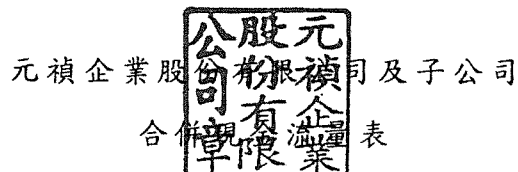 元禎企業股份有限公司及子公司
合併現金流量表
元禎企業
股份有限
公司章